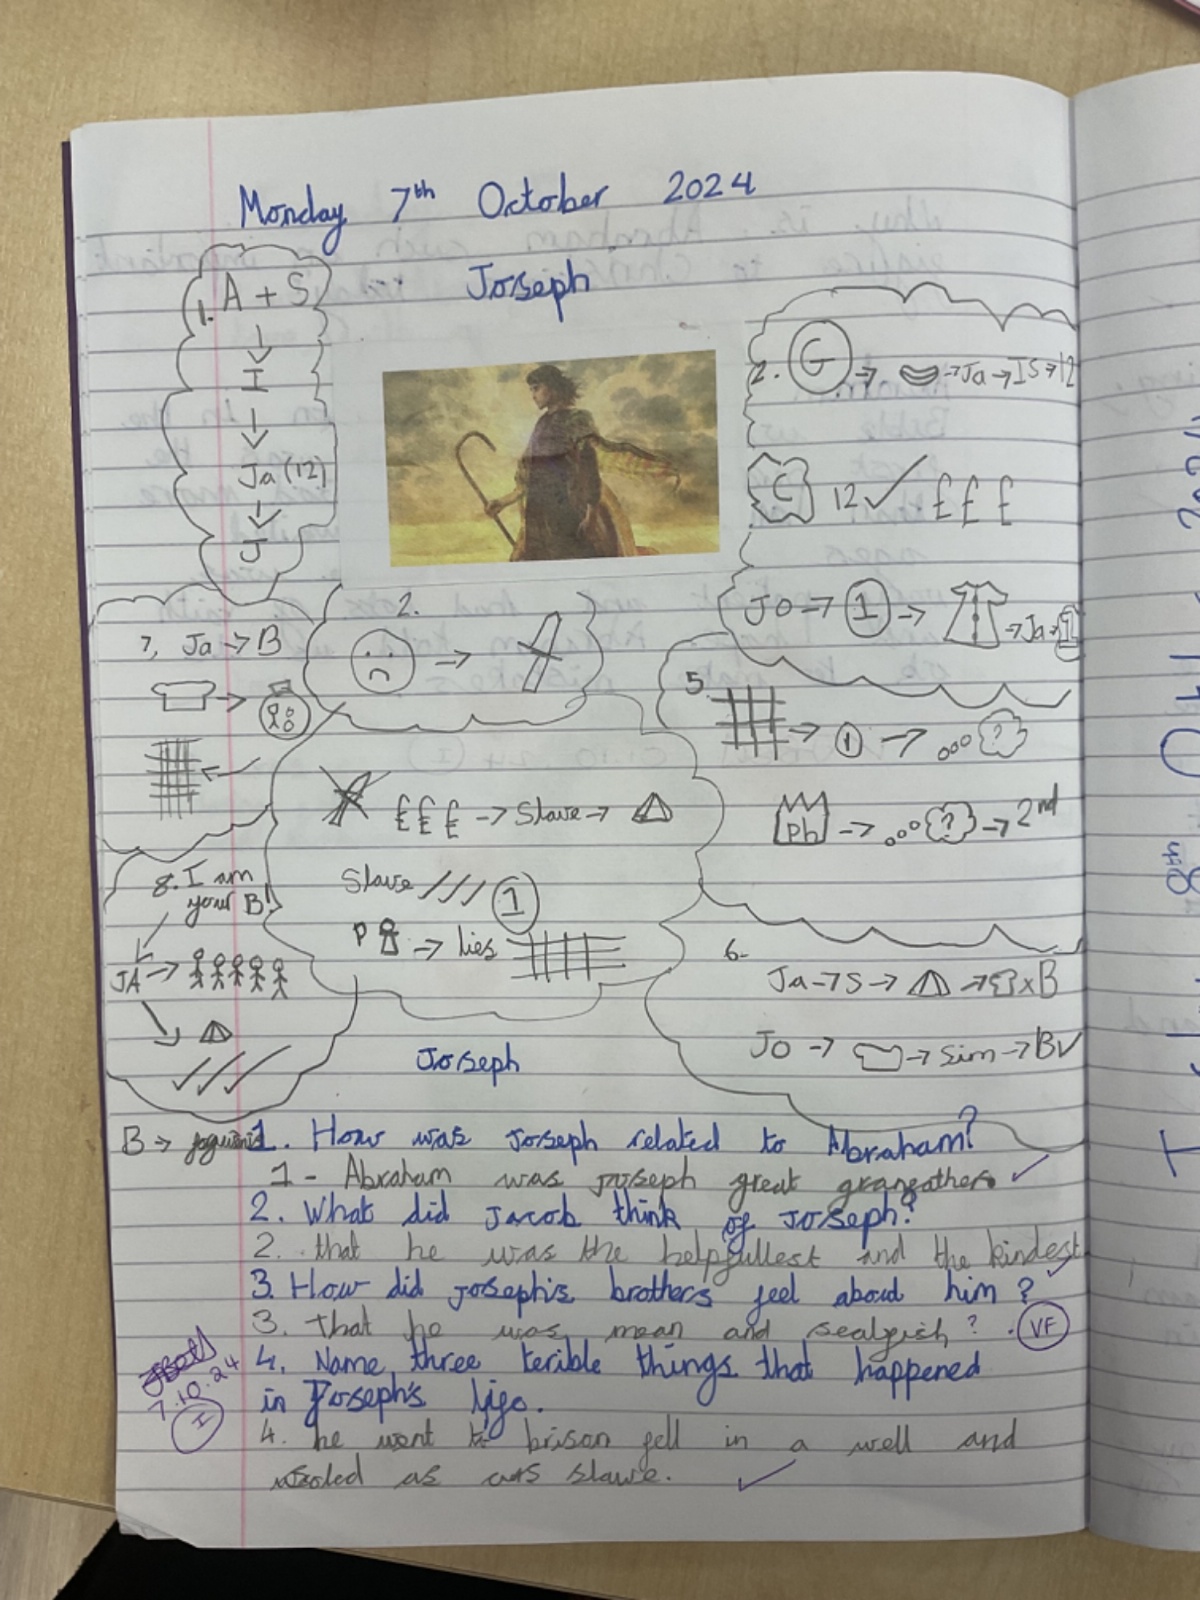 Monday 7th October 2024
Joseph
1. A + S
I
Ja (12)
J
2. G → → Ja → IS → 12
C 12 ✓ £ £ £
JO → 1 → → Ja →
2.
→
5.
→ 1 → ?
Ph → ? → 2nd
7, Ja → B
→
£ £ £ → Slave →
Slave /// 1
P → lies
8. I am
your B!
JA →
6-
Ja → S → → x B
JO → → Sim → B✓
Joseph
B →
1. How was Joseph related to Abraham?
1 - Abraham was joseph great grangathers ✓
2. What did Jacob think of Joseph?
2. that he was the helpfullest and the kindest
3. How did joseph's brothers feel aboud him ?
3. That he was mean and sealgish ? . VF
4. Name three terible things that happened
in Joseph's life.
4. he went to brison fell in a well and
as slave. ✓
7.10.24
I